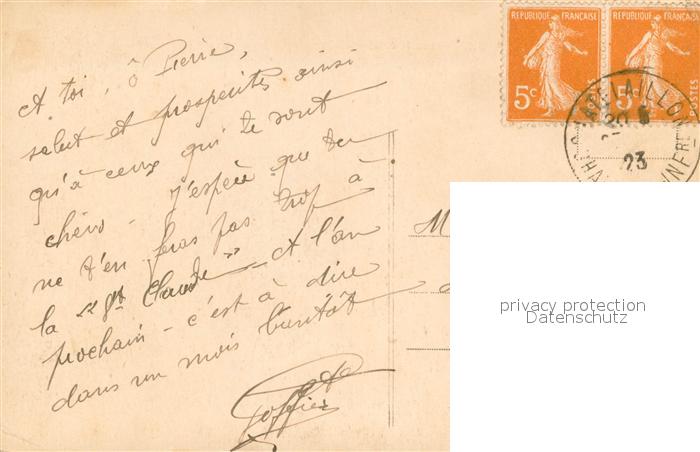 A toi, ô Pierre,
salut et prospérités ainsi
qu'à ceux qui te sont
chers - J'espère que tu
ne t'en fais pas trop à
la "St Claude" - A l'an
prochain - c'est à dire
dans un mois bientôt
REPUBLIQUE FRANÇAISE
5c
POSTES
REPUBLIQUE FRANÇAISE
5c
POSTES
CHATELAILLON
20
23
M
privacy protection
Datenschutz